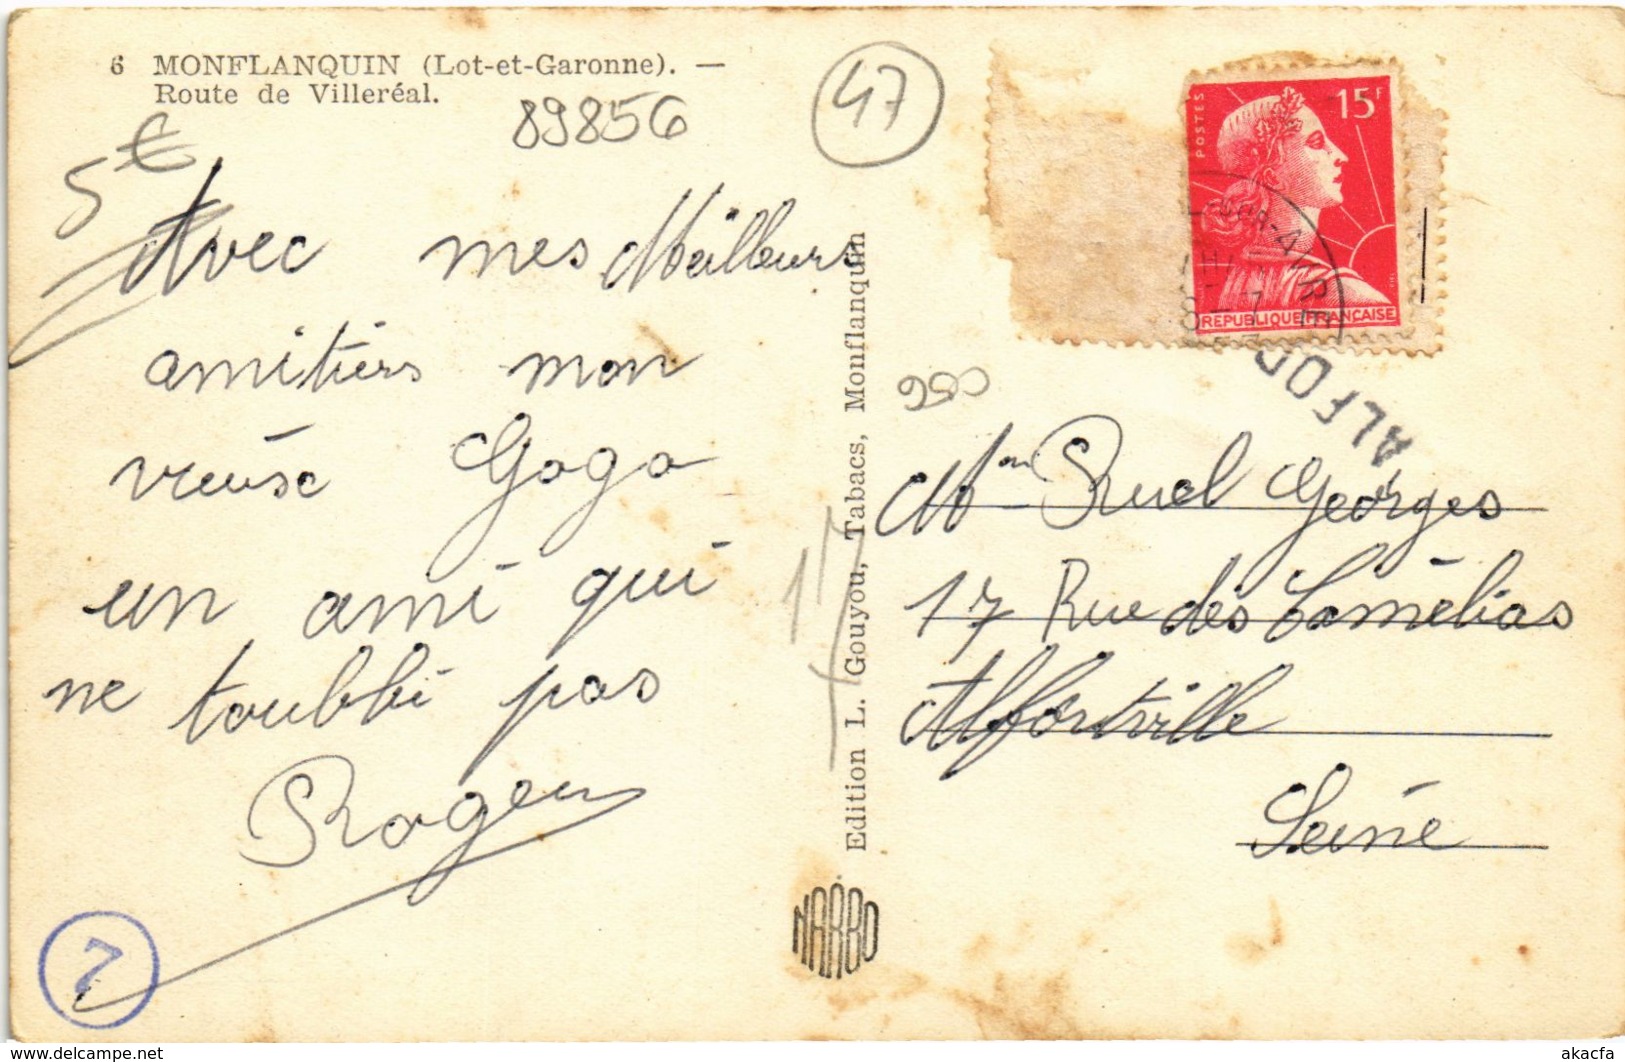 6 MONFLANQUIN (Lot-et-Garonne). —
Route de Villeréal.
89856
47
5€
Avec mes Meilleurs
amitiers mon
vieuse Gogo
un ami qui
ne toubbi pas
Roger
7
Edition L. Gouyou, Tabacs, Monflanquin
NARBO
POSTES
15F
REPUBLIQUE FRANÇAISE
ALFOR
Mon Ruel Georges
17 Rue des Camélias
Alfortville
Seine
akacfa
www.delcampe.net